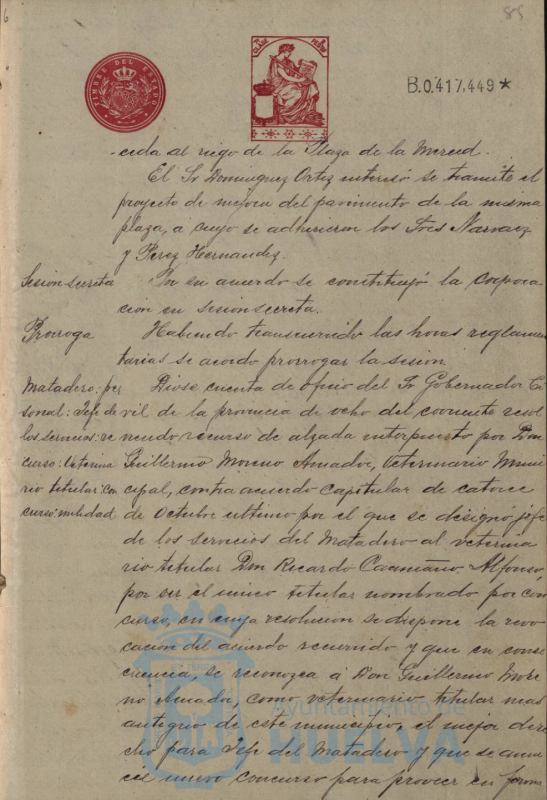 85
TIMBRE DEL ESTADO
CLASE
B.0.417,449*
-ceda al riego de la Plaza de la Merced.
El Sr Dominguez Ortiz interesó se tramite el
proyecto de mejora del pavimento de la misma
plaza, a cuyo se adhirieron los Sres Narvaez
y Perez Hernandez.
Sesion secreta
En su acuerdo se constituyó la Corpora
ción en sesion secreta.
Prorroga
Habiendo transcurrido las horas reglamen
tarias se acordo prorrogar la sesion
Matadero: per
sonal: Jefe de
los servicios: re
curso: Veterina
rio titular: con
curso: nulidad
Diose cuenta de oficio del Sr Gobernador Ci
vil de la provincia de ocho del corriente resol
viendo recurso de alzada interpuesto por Don
Guillermo Moreno Amador, Veterinario Muni
cipal, contra acuerdo capitular de catorce
de Octubre ultimo por el que se designó jefe
de los servicios del Matadero al veterina
rio titular Don Ricardo Caamaño Alfonso,
por ser el unico titular nombrado por con
curso, en cuya resolucion se dispone la revo
cacion del acuerdo recurrido y que en conse
cuencia, se reconozca á Don Guillermo More
no Amador, como veterinario titular mas
antiguo de este municipio, el mejor dere
cho para Jefe del Matadero y que se anun
cie nuevo concurso para proveer en forma
Ayuntamiento de
HUELVA